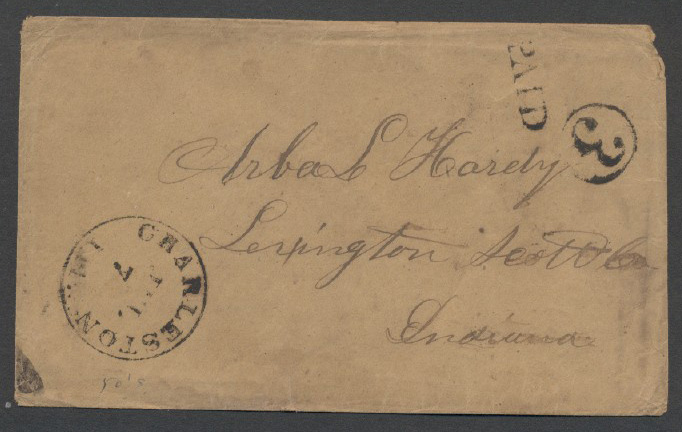 PAID
3
Arba L Hardy
Lexington Scott Co
Indiana
CHARLESTON
50's